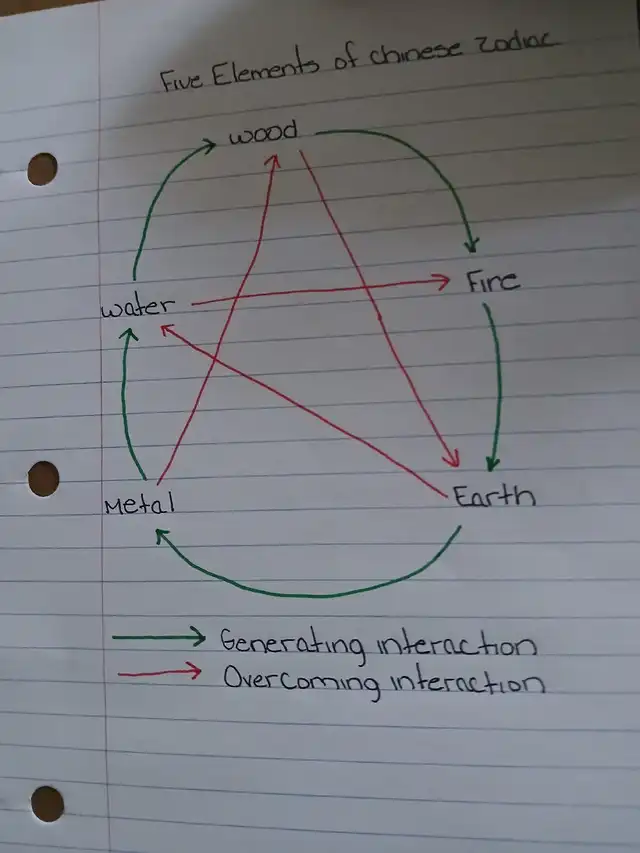 Five Elements of Chinese Zodiac
wood
Fire
water
Metal
Earth
Generating interaction
Overcoming interaction